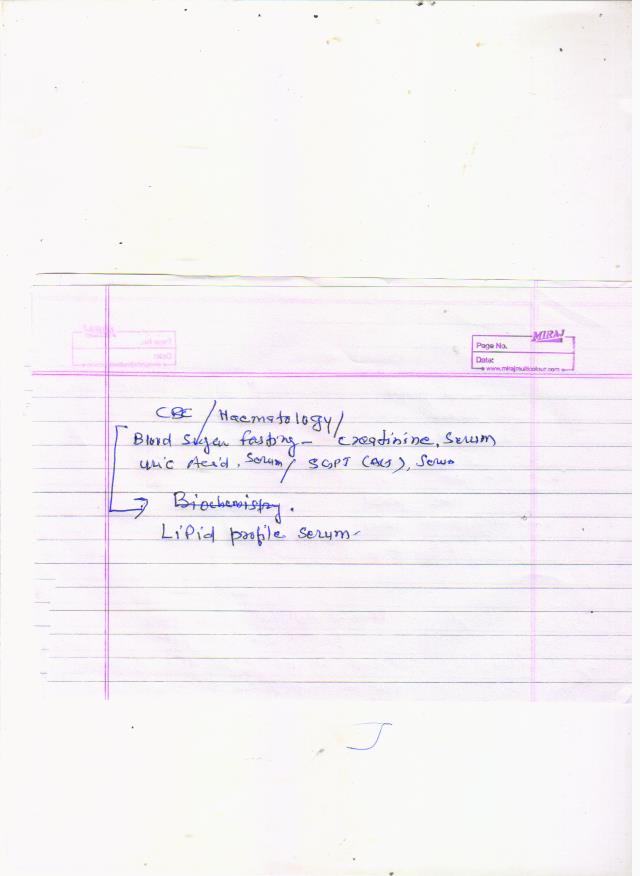 MIRAJ
Page No.
Date:
www.mirajmulticolour.com
CBC / Haematology /
Blood Sugar fasting - Creatinine, Serum
Uric Acid, Serum / SGPT (ALT), Serum
Biochemistry.
LiPid profile serum-
J